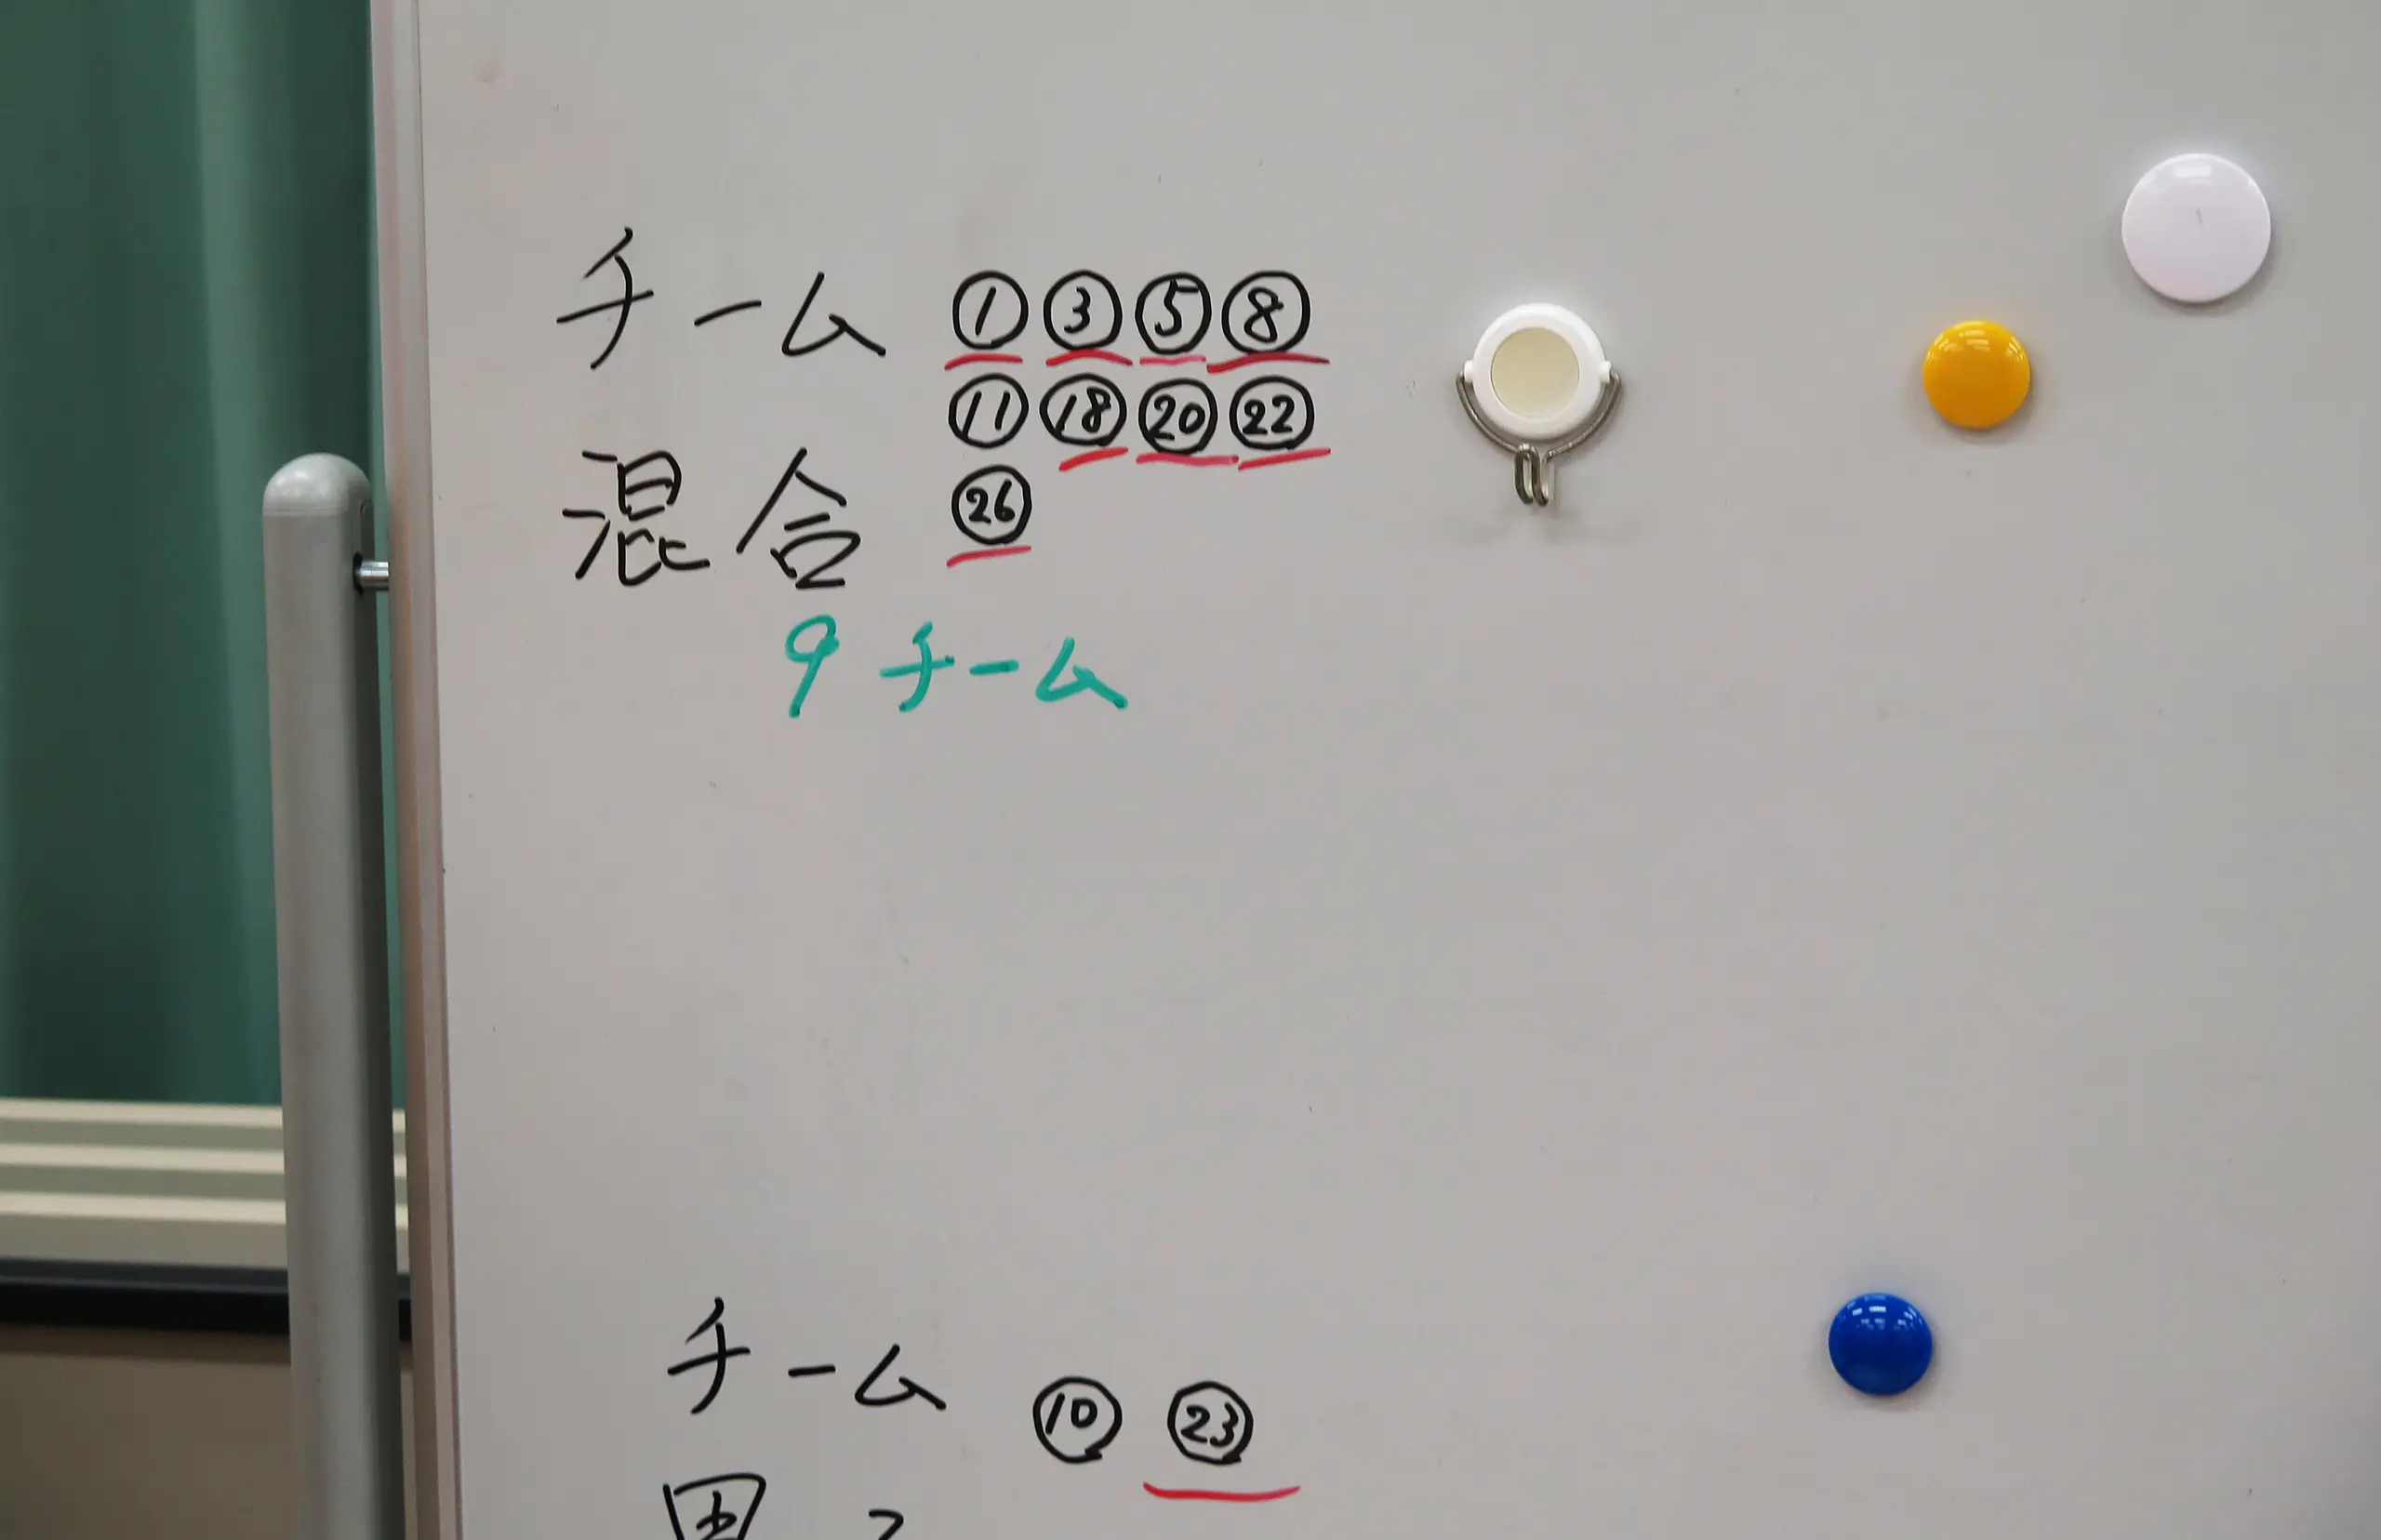 チーム ①③⑤⑧
⑪⑱⑳㉒
混合 ㉖
9チーム
チーム ⑩ ㉓